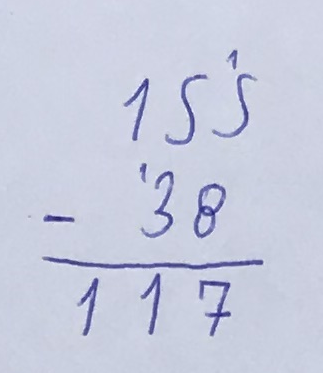 155
- 38
117